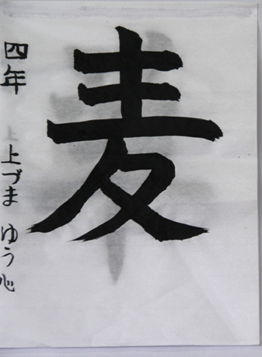 麦
四年 上づま ゆう心